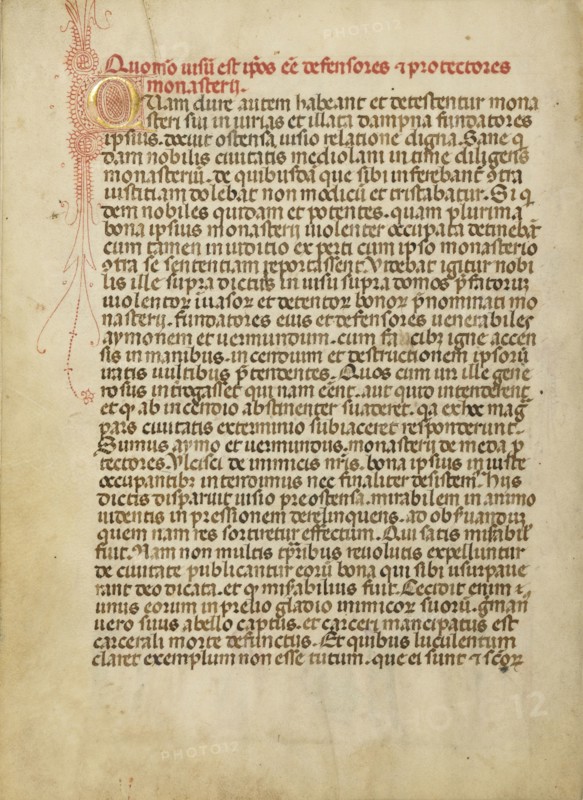 Quom̄o uisū est ip̄os eē defensores ⁊ protectores
monasterij.
Quam dure autem habeant et detestentur mona
sterij sui iniurias et illata dampna fundatores
ipsius. docuit ostensa uisio relatione digna. Sane q̄
dam nobilis ciuitatis mediolani intime diligens
monasteriū. de quibusdā que sibi inferebant᷑ 9tra
iustitiam dolebat non modicū et tristabatur. Siq̄
dem nobiles quidam et potentes. quam plurima
bona ipsius monasterij uiolenter occupata detinebāt
cum tamen in iuditio experti cum ipso monasterio
9tra se sententiam reportassent. Videbat igitur nobi
lis ille supra dictus in uisu supra domos p̄fatorum
uiolentor̄ īuasor̄ et detentor̄ bonor̄ p̄nominati mo
nasterij. fundatores eius et defensores uenerabiles
aymonem et uermundum. cum facibꝫ igne accen
sis in manibus. incendium et destructionem ipsorū
iratis uultibus p̄tendentes. Quos cum uir ille gene
rosus īterogasset qui nam eēnt. aut quid intenderent
et qr̄ ab incendio abstinenter suaderet. qa exhoc mag᷑
pars ciuitatis exterminio subiaceret responderunt.
Sumus aymo et uermundus. monasterij de meda p̄
tectores. Vlcisci de inimicis nr̄is. bona ipsius iniuste
occupantibꝫ intendimus nec finaliter desistem᷒. Hijs
dictis disparuit uisio preostensa. mirabilem in animo
uidentis impressionem derelinquens. ad obseruandum
quem nam res sortiretur effectum. Qui satis misabil᷑
fuit. Nam non multis tp̄ribus reuolutis expelluntur
de ciuitate publicantur eorū bona qui sibi usurpaue
rant deo dicata. et qr̄ misabilius fuit. Cecidit enim
unus eorum in prelio gladio inimicor̄ suorū. gman᷒
uero suus abello captus. et carceri mancipatus est
carcerali morte defunctus. Et quibus luculentum
claret exemplum non esse tutum. que ei sunt ⁊ scōꝝ
PHOTO12
PHOTO12